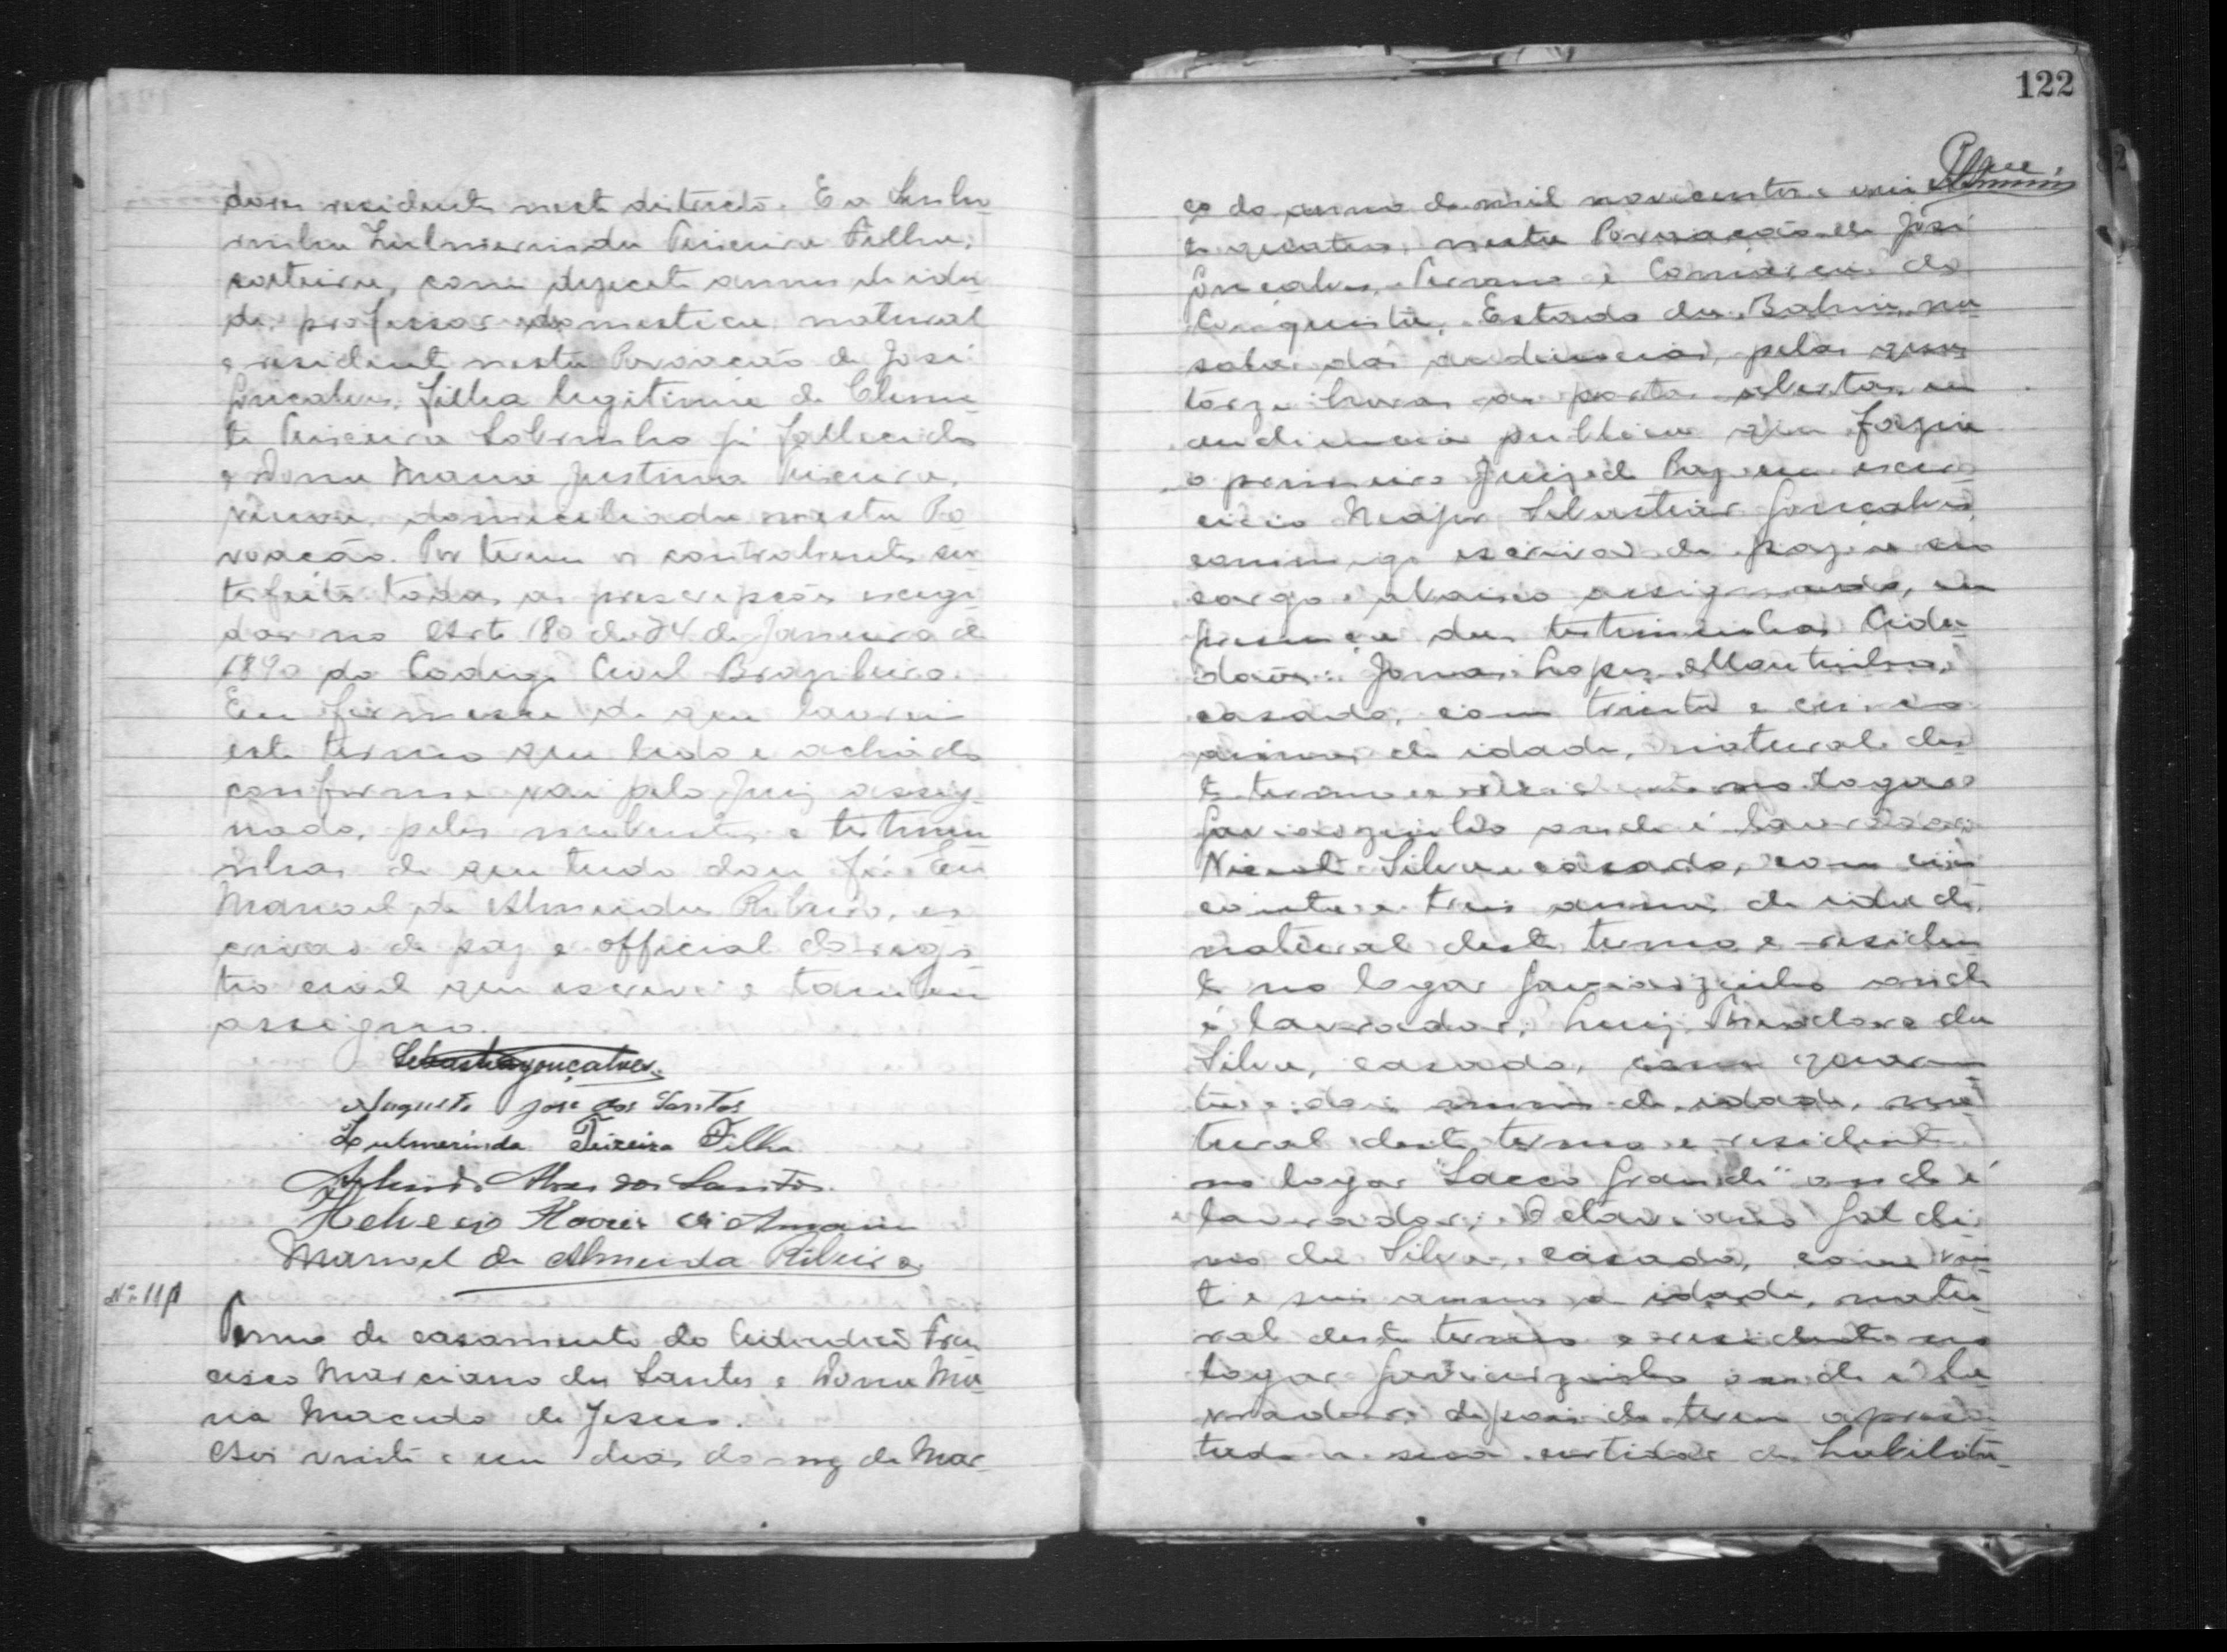 dores residente neste districto. E a Senho
rinha Zulmerinda Teixeira Filha,
solteira, com dezecete annos de ida
de, profissão domestica, natural
e residente nesta Povoação de José
Gonçalves, filha legitima de Clemen
te Teixeira Sobrinho já fallecido
e Dona Maria Justina Teixeira,
viuva, domiciliada nesta Po
voação. Por terem os contrahentes sa
tisfeito todas as prescripções exegi
das no Art. 180 de 24 de Janeiro de
1890 do Codigo Civil Brazileiro.
Em firmesa de que lavrei
este termo que lido e achado
conforme vai pelo Juiz assig
nado, pelos nubentes e testemu
nhas de que tudo dou fé. Eu
Manoel de Almeida Ribeiro, es
crivão de paz e official do regis
tro civil que escrevi e tambem
assigno.
Sebastião Gonçalves
Augusto José dos Santos
Zulmerinda Teixeira Filha
Alves dos Santos
de
Manoel de Almeida Ribeiro
Nº 111
Termo de casamento do Cidadão Fran
cisco Marciano dos Santos e Dona Ma
ria Macedo de Jesus.
Aos vinte e um dias do mez de Mar
122
ço do anno de mil novecentos e vin
te quatro, nesta Povoação de José
Gonçalves, Termo e Comarca de
Conquista, Estado da Bahia, na
sala das audiencias, pelas qua
torze horas as portas abertas, em
audiencia publica que fazia
o primeiro Juiz de Paz em exer
cicio Major Sebastião Gonçalves,
commigo escrivão de paz e seu
cargo e abaixo assignado, em
presença das testemunhas Cida
dãos: Jonas Lopes Moutinho,
casado, com trinta e cinco
annos de idade, natural des
te termo e residente no logar
onde é lavrador;
Silva, casado, com cin
coenta e tres annos de idade,
natural deste termo e residen
te no logar onde
é lavrador; Luiz Theodoro da
Silva, casado, com quaren
ta e dois annos de idade, na
tural deste termo e residente
no logar "Sacco Grande" onde é
lavrador; Octaviano Galdi
no da Silva, casado, com vin
te e seis annos de idade, natu
ral deste termo e residente no
logar onde é la
vrador; depois de terem apresen
tado a sua certidão de habilita